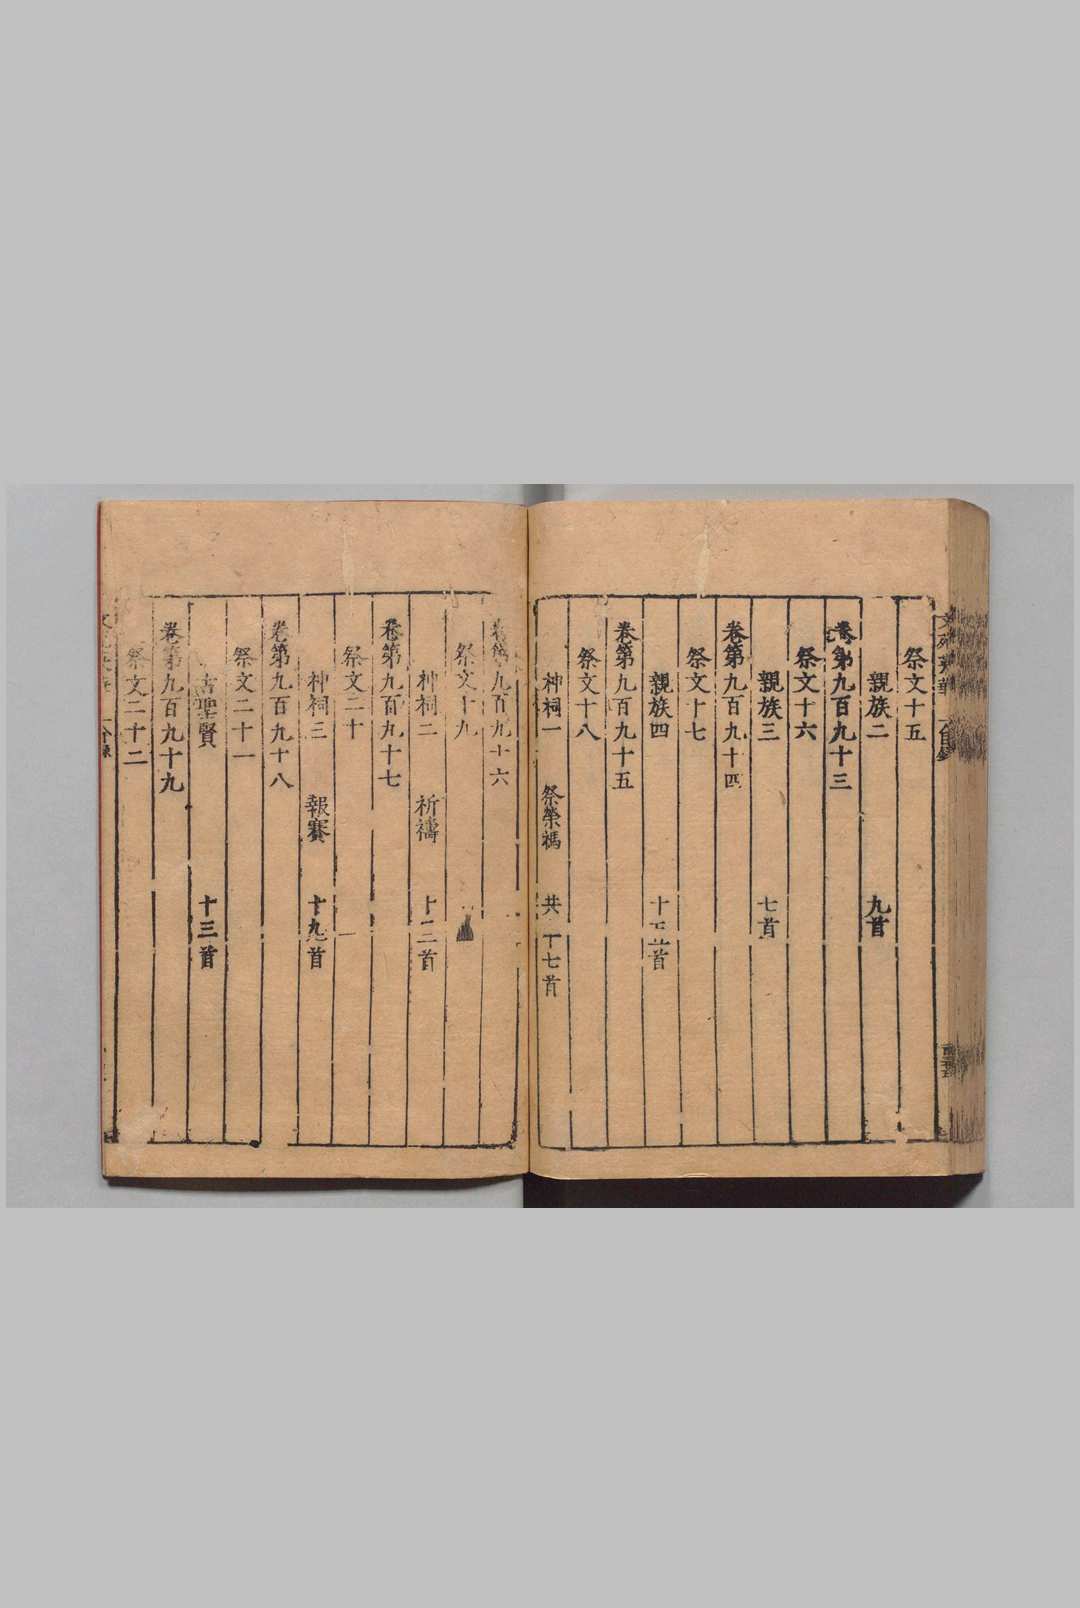 祭文十五
親族二 九首
卷第九百九十三
祭文十六
親族三 七首
卷第九百九十四
祭文十七
親族四 十五首
卷第九百九十五
祭文十八
神祠一 祭禜禡 共十七首
卷第九百九十六
祭文十九
神祠二 祈禱 十二首
卷第九百九十七
祭文二十
神祠三 報賽 十九首
卷第九百九十八
祭文二十一
古聖賢 十三首
卷第九百九十九
祭文二十二